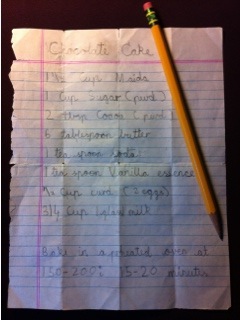 Chocolate Cake
1 1/2 Cup Maida
1 Cup sugar (pwrd)
2 tbsp Cocoa (pwrd)
6 tablespoon butter
1 tea spoon soda
1 tea spoon Vanilla essence
Cup curd (2 eggs)
3/4 Cup milk
Bake in a preheated oven at
150-200°C 15-20 minutes